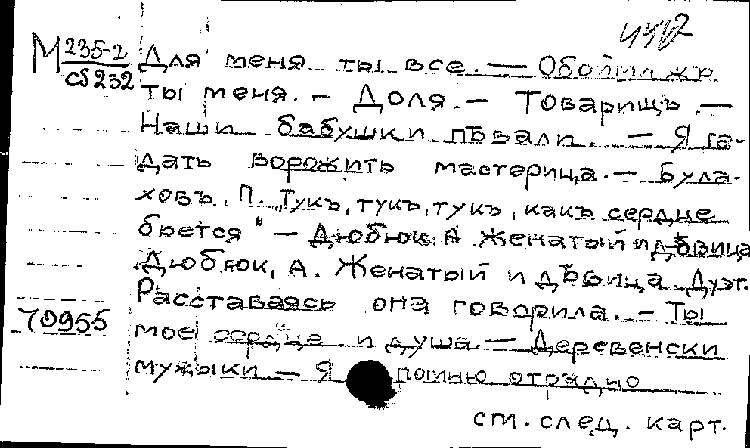 М 235-2
cS 232
Для меня ты все. — Обойми жъ
ты меня. — Доля. — Товарищъ. —
Наши бабушки пѣвали. — Я га-
дать ворожить мастерица. — Була-
ховъ, П. Тукъ, тукъ, тукъ, какъ сердце
бьется" — Дюбюк, А. Женатый и дѣвица
Дюбюк, А. Женатый и дѣвица. Дуэт.
Расставаясь она говорила. — Ты
70955
мое сердце и душа — Деревенски
мужыки — Я помню отрадно
см. след. карт.